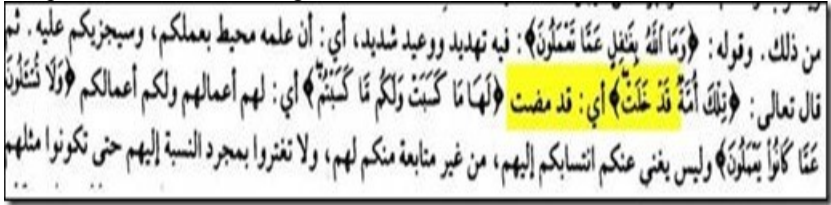 من ذلك. وقوله: ﴿وَمَا اللَّهُ بِغَافِلٍ عَمَّا تَعْمَلُونَ﴾: فيه تهديد ووعيد شديد، أي: أن علمه محيط بعملكم، وسيجزيكم عليه. ثم
قال تعالى: ﴿تِلْكَ أُمَّةٌ قَدْ خَلَتْ﴾ أي: قد مضت ﴿لَهَا مَا كَسَبَتْ وَلَكُمْ مَا كَسَبْتُمْ﴾ أي: لهم أعمالهم ولكم أعمالكم ﴿وَلَا تُسْأَلُونَ
عَمَّا كَانُوا يَعْمَلُونَ﴾ وليس يغني عنكم انتسابكم إليهم، من غير متابعة منكم لهم، ولا تغتروا بمجرد النسبة إليهم حتى تكونوا مثلهم